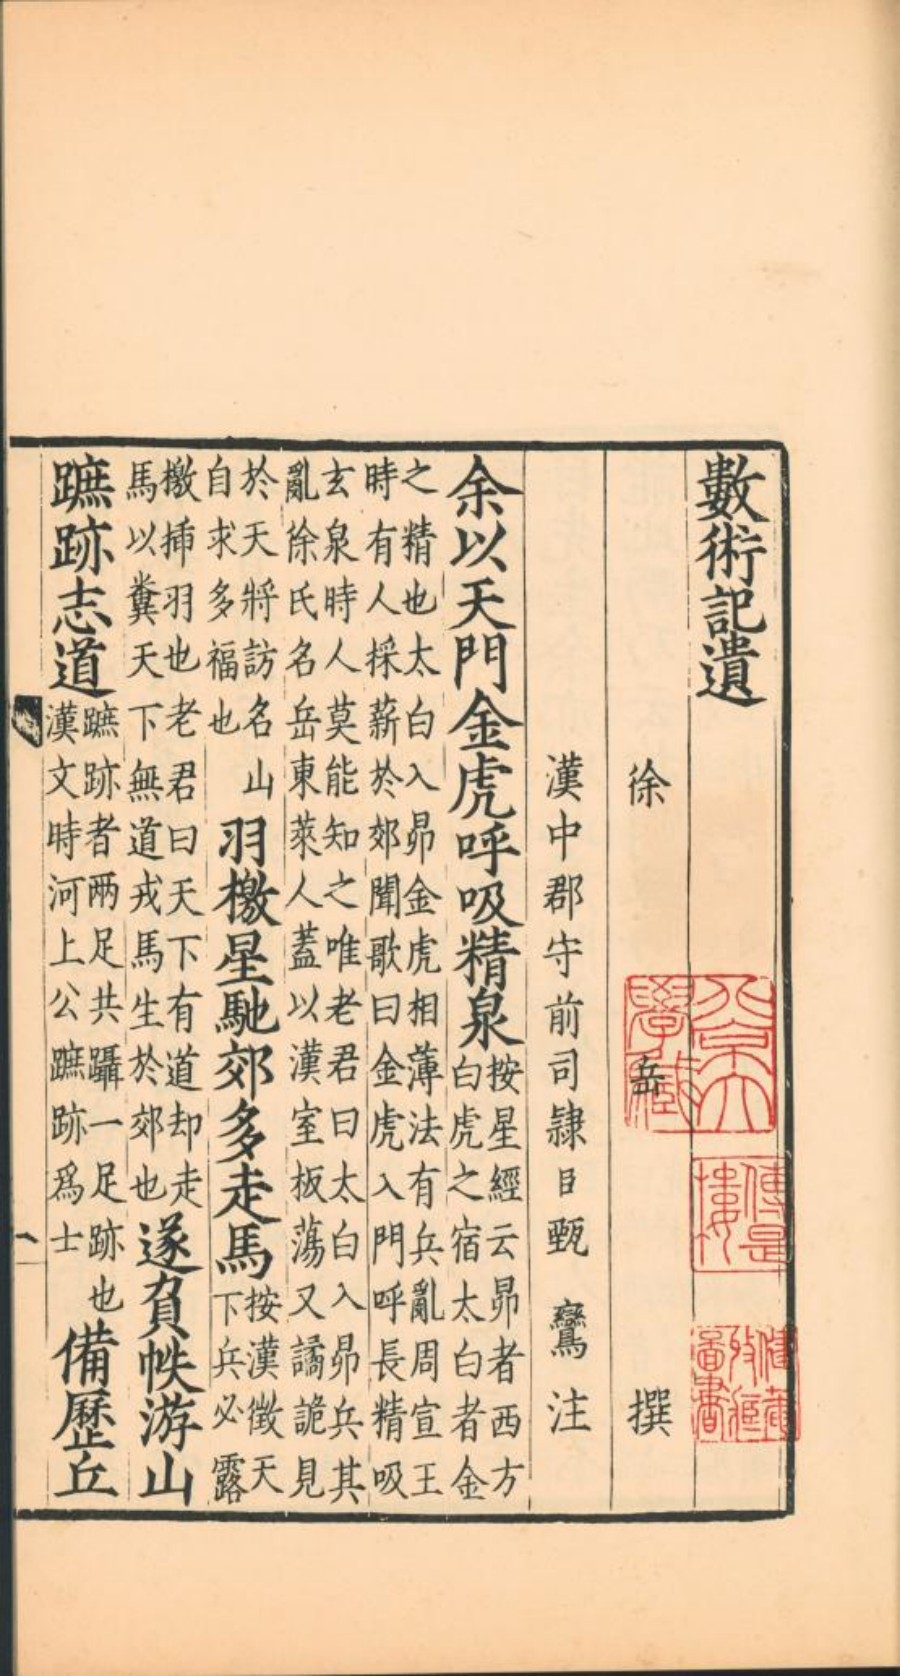 數術記遺
徐岳撰
漢中郡守前司隷臣甄鸞注
余以天門金虎呼吸精泉
按星經云昴者西方
白虎之宿太白者金
之精也太白入昴金虎相薄法有兵亂周宣王
時有人採薪於郊聞歌曰金虎入門呼長精吸
玄泉時人莫能知之唯老君曰太白入昴兵其
亂徐氏名岳東萊人蓋以漢室板蕩又譎詭見
於天將訪名山
自求多福也
羽檄星馳郊多走馬
按漢徵天
下兵必露
檄揷羽也老君曰天下有道却走
馬以糞天下無道戎馬生於郊也
遂負帙游山
蹠跡志道
蹠跡者兩足共躡一足跡也
漢文時河上公蹠跡爲士
備歷丘
一
傳是樓